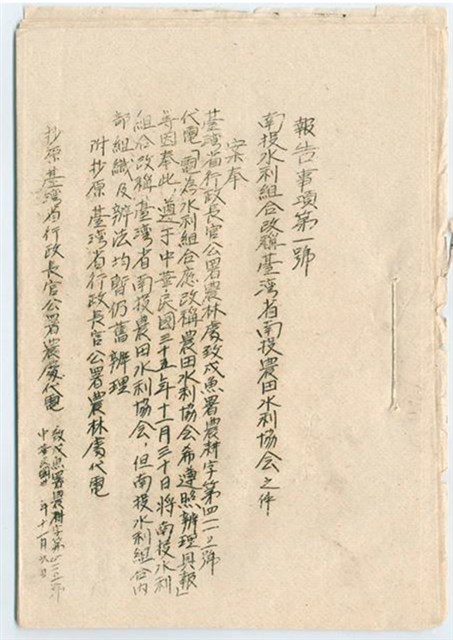 報告事項第一號
南投水利組合改稱臺灣省南投農田水利協會之件
案奉
臺灣省行政長官公署農林處致戌魚署農耕字第四一二二號
代電「電為水利組合應改稱農田水利協會希遵照辦理具報」
等因奉此，遵于中華民國三十五年十一月三十日將南投水利
組合改稱臺灣省南投農田水利協會，但南投水利組合內
部組織及辦法均暫仍舊辦理
附抄原臺灣省行政長官公署農林處代電
抄原臺灣省行政長官公署農處代電
致戌魚署農耕字第
中華民國 年十一月 日